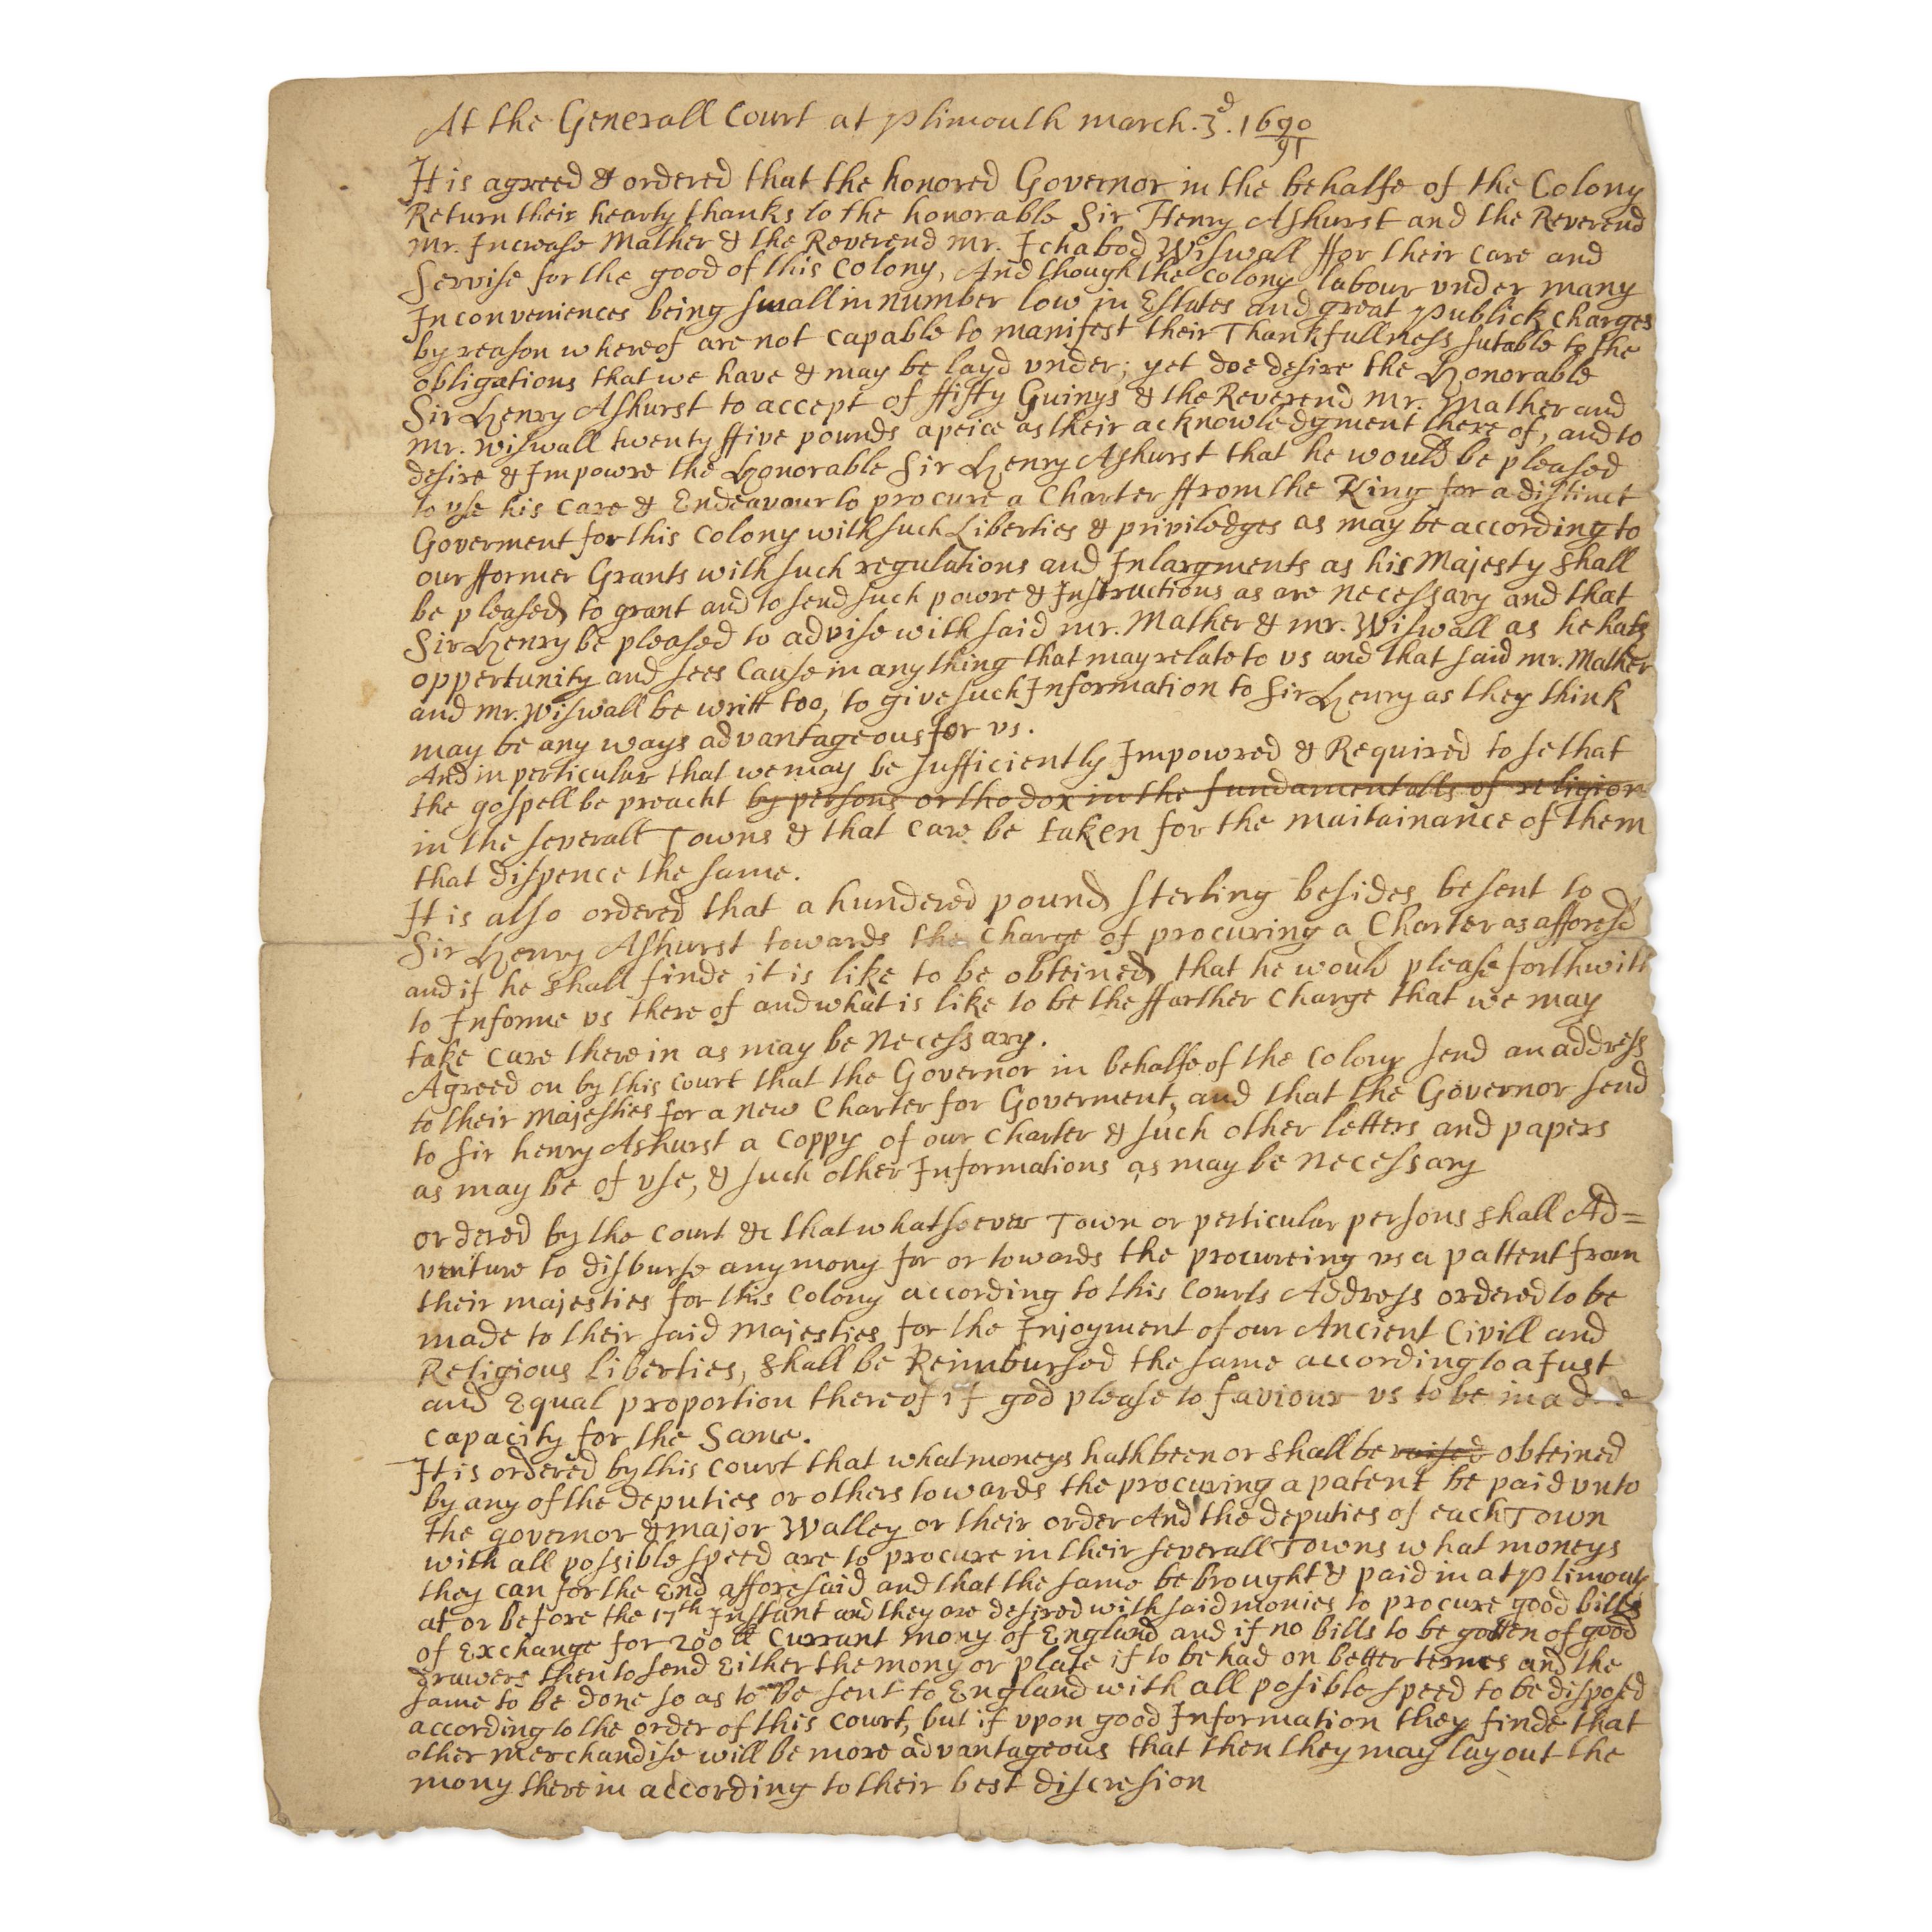 At the Generall Court at plimouth march. 3d. 1690/91
It is agreed & ordered that the honored Governor in the behalfe of the Colony
Return their hearty thanks to the honorable Sir Henry Ashurst and the Reverend
mr. Increase Mather & the Reverend mr. Ichabod Wiswall ffor their care and
Servise for the good of this Colony, And though the Colony labour vnder many
Inconveniences being small in number low in Estates and great publick charges
by reason whereof are not capable to manifest their Thankfullness sutable to the
obligations that we have & may be layd vnder; yet doe desire the Honorable
Sir Henry Ashurst to accept of ffifty Guinys & the Reverend mr. Mather and
mr. wiswall twenty ffive pounds apeice as their acknowledgment there of, and to
desire & Impowre the Honorable Sir Henry Ashurst that he would be pleased
to vse his care & Endeavour to procure a Charter ffrom the King for a distinct
Goverment for this Colony with such Liberties & priviledges as may be according to
our fformer Grants with such regulations and Inlargments as his Majesty shall
be pleased to grant and to send such powre & Instructions as are necessary and that
Sir Henry be pleased to advise with said mr. Mather & mr. Wiswall as he hath
oppertunity and sees Cause in any thing that may relate to vs and that said mr. Mather
and mr. wiswall be writt too, to give such Information to Sir Henry as they think
may be any ways advantageous for vs.
And in perticular that we may be sufficiently Impowred & Required to se that
the gospell be preacht by persons orthodox in the fundamentalls of religion
in the severall Towns & that care be taken for the maitainance of them
that dispence the same.
It is also ordered that a hundered pound sterling besides be sent to
Sir Henry Ashurst towards the charge of procuring a Charter as afforesd
and if he shall finde it is like to be obteined that he would please forthwith
to Informe vs there of and what is like to be the ffarther Charge that we may
take care there in as may be necessary.
Agreed on by this court that the Governor in behalfe of the colony send an address
to their majesties for a new Charter for Goverment, and that the Governor send
to sir henry Ashurst a coppy of our Charter & such other letters and papers
as may be of vse, & such other Informations as may be necessary
ordered by the court &c that whatsoever Town or perticular persons shall Ad=
venture to disburse any mony for or towards the procureing vs a pattent from
their majesties for this Colony according to this Courts Address ordered to be
made to their said majesties for the Injoyment of our Ancient Civill and
Religious Liberties, shall be Reimbursed the same according to a Just
and Equal proportion there of if god please to faviour vs to be in a
capacity for the Same.
It is ordered by this Court that what moneys hath been or shall be raised obteined
by any of the deputies or others towards the procuring a patent be paid vnto
the governor & major Walley or their order And the deputies of each Town
with all possible speed are to procure in their severall Towns what moneys
they can for the End afforesaid and that the same be brought & paid in at plimouth
at or before the 17th Instant and they are desired with said monies to procure good bills
of Exchange for 200ll Currant mony of England and if no bills to be gotten of good
drawers then to send Either the mony or plate if to be had on better termes and the
same to be done so as to be sent to England with all posible speed to be disposed
according to the order of this court, but if vpon good Information they finde that
other merchandise will be more advantageous that then they may lay out the
mony there in according to their best discresion